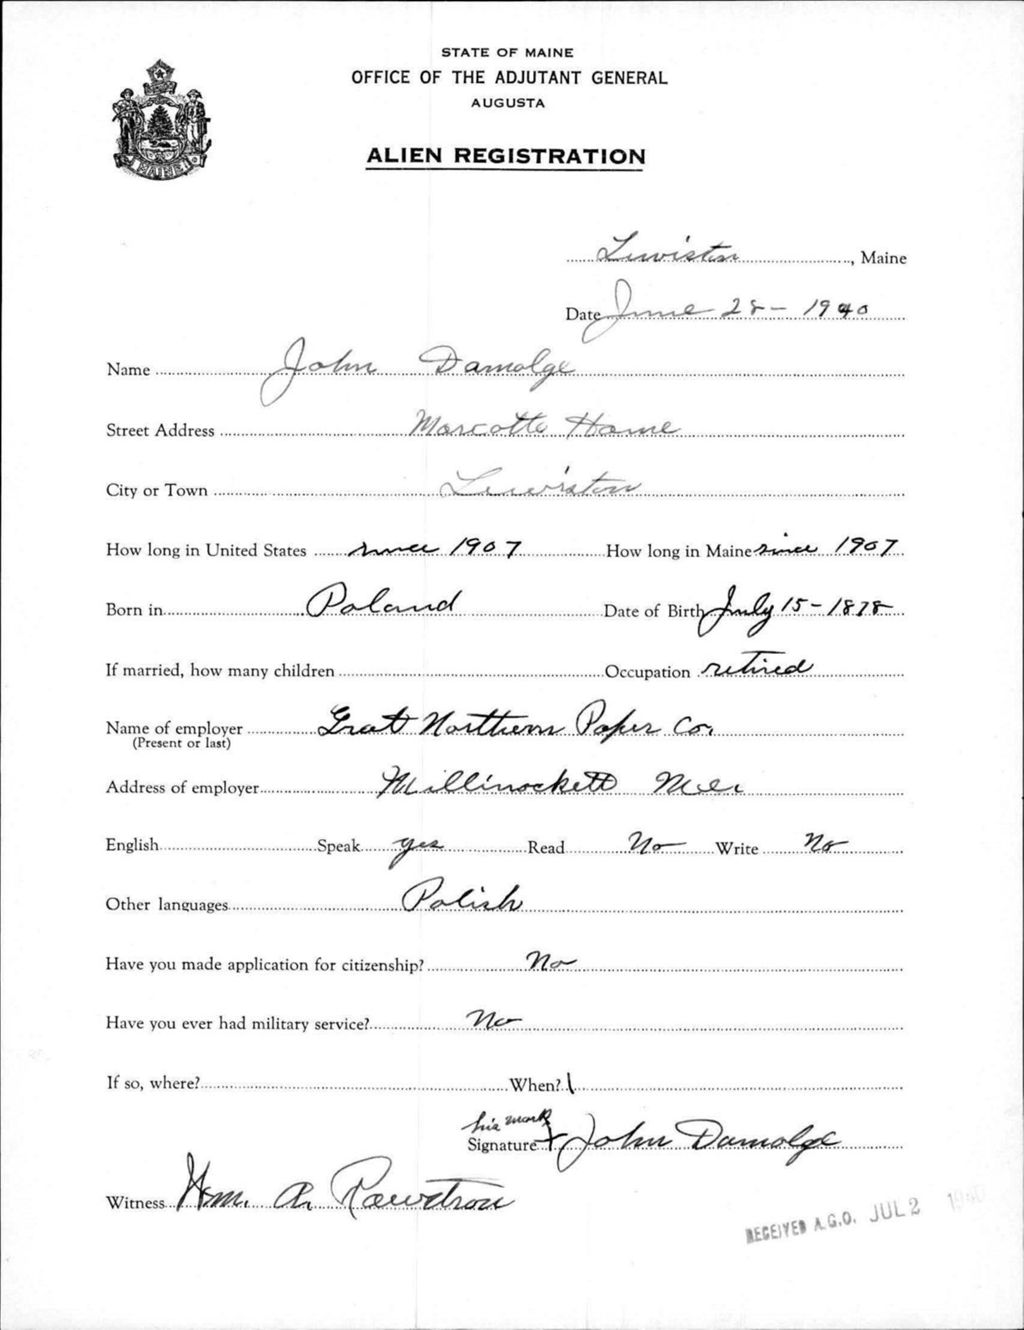 STATE OF MAINE
OFFICE OF THE ADJUTANT GENERAL
AUGUSTA
ALIEN REGISTRATION
MAINE
Lewiston, Maine
Date June 28 - 1940
Name John Damolge
Street Address Marcotte Home
City or Town Lewiston
How long in United States since 1907 How long in Maine since 1907
Born in Poland Date of Birth July 15 - 1878
If married, how many children Occupation retired
Name of employer Great Northern Paper Co.
(Present or last)
Address of employer Millinockett
English Speak yes Read No Write No
Other languages Polish
Have you made application for citizenship? No
Have you ever had military service? No
If so, where? When?
his mark
Signature + John Damolge
Witness Wm. A.
RECEIVED A.G.O. JUL 2 1940